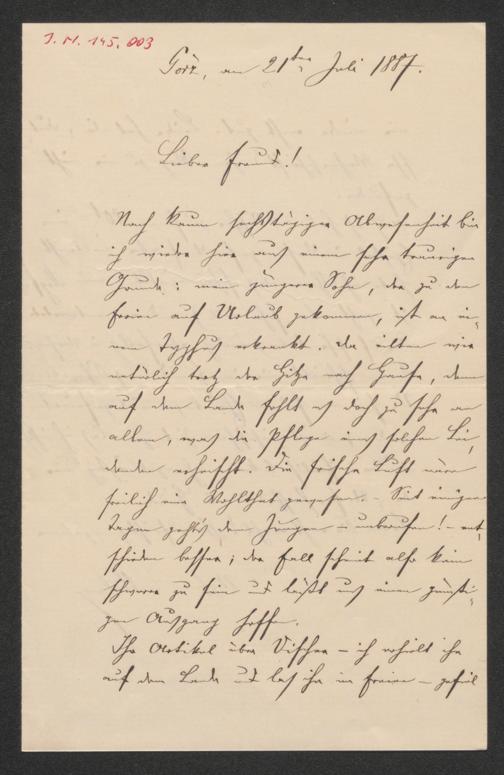 J. N. 145.003
Görz, am 21ten Juli 1887.
Lieber Freund!
Nach kaum sechstägiger Abwesenheit bin
ich wieder hier aus einem sehr traurigen
Grunde: mein jüngerer Sohn, der zu den
Ferien auf Urlaub gekommen, ist an ei-
nem Typhus erkrankt. Da eilten wir
natürlich trotz der Hitze nach Hause, denn
auf dem Lande fehlt es doch zu sehr an
allem, was die Pflege eines solchen Lei-
denden erheischt. Die frische Luft wäre
freilich eine Wohlthat gewesen. – Seit einigen
Tagen geht's dem Jungen – unberufen! – ent-
schieden besser; der Fall scheint also kein
schwerer zu sein und läßt uns einen günsti-
gen Ausgang hoffen.
Ihr Artikel über Vischer – ich erhielt ihn
auf dem Lande und las ihn im Freien – gefiel